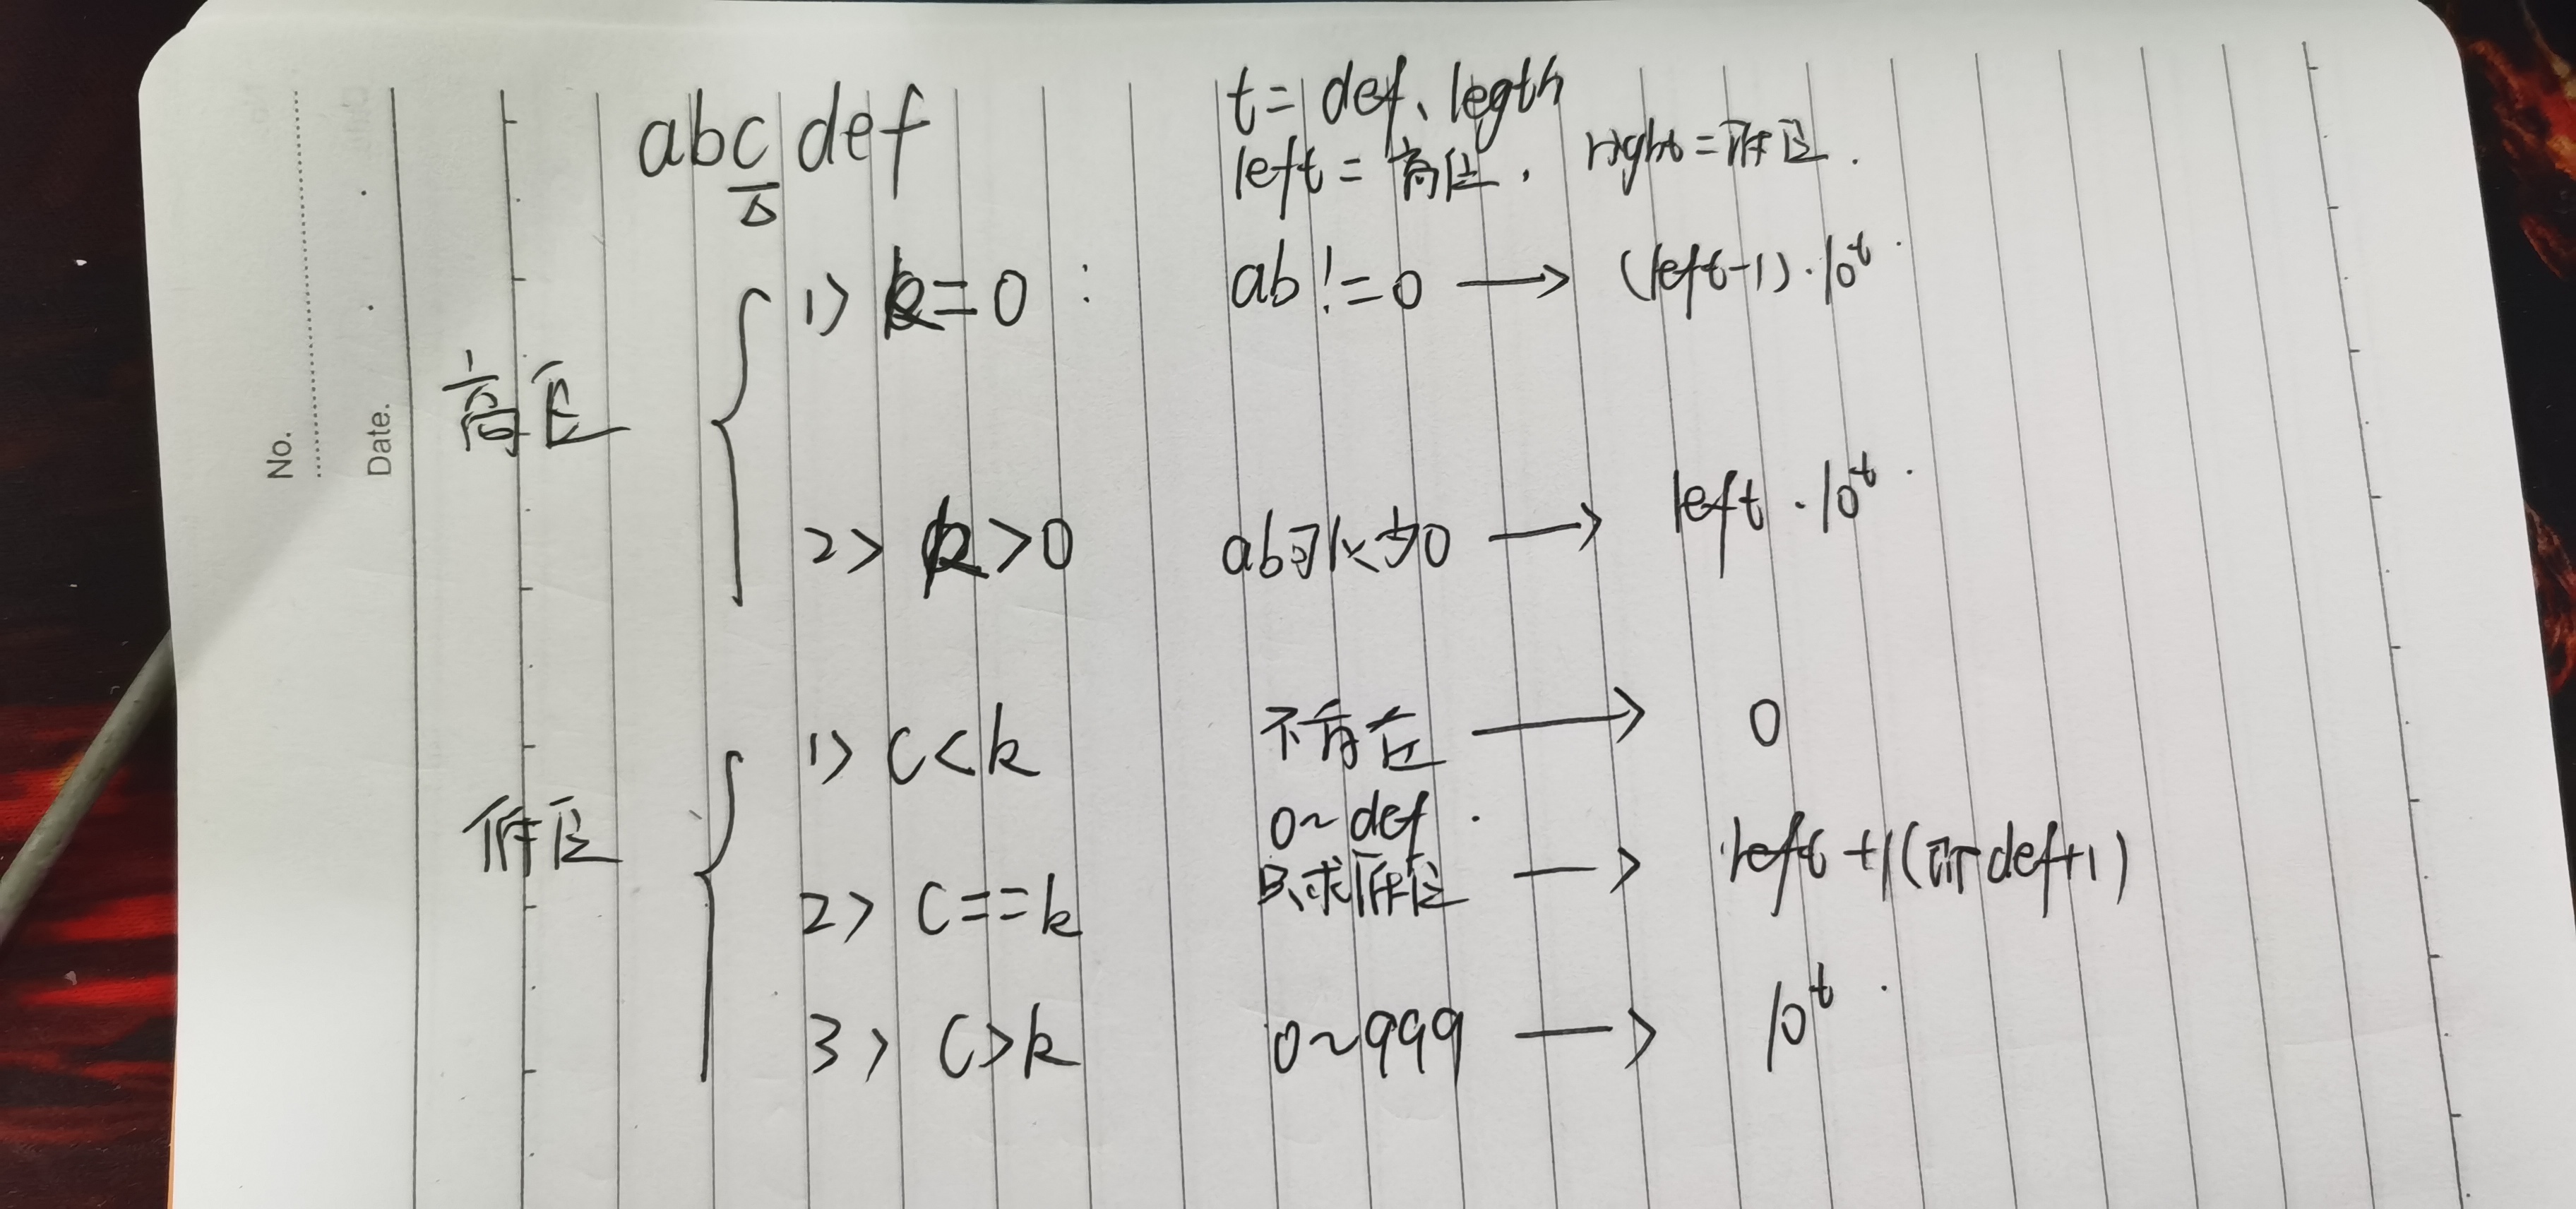 No.
Date.
abc def
t = def、legth
left = 高位, right = 低位.
高位
1> k = 0 : ab != 0 → (left-1)·10^t.
2> k > 0 ab可以为0 → left·10^t.
低位
1> c < k 不存在 → 0
2> c == k 0~def. 只求低位 → left +1 (即def+1)
3> c > k 0~999 → 10^t.